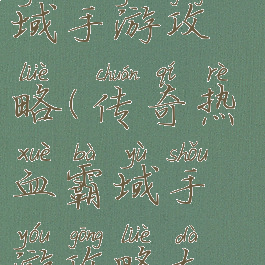 域手游攻
lüè chuán qí rè
略(传奇热
xuè bà yù shǒu
血霸域手
yóu gōng lüè dà
游攻略大